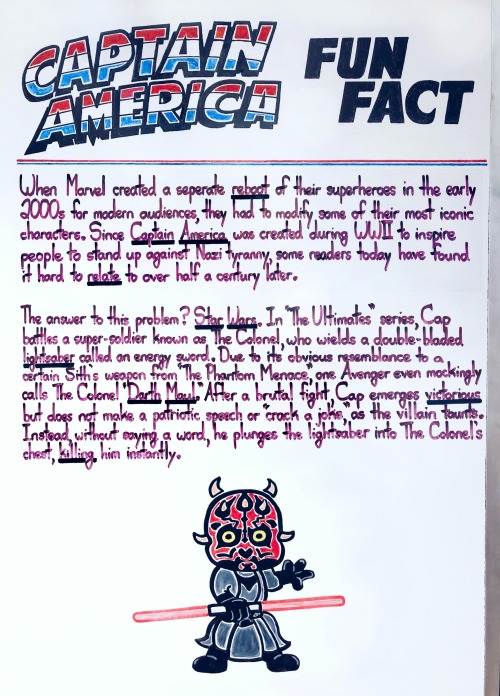 CAPTAIN AMERICA
FUN FACT
When Marvel created a seperate reboot of their superheroes in the early
2000s for modern audiences, they had to modify some of their most iconic
characters. Since Captain America was created during WWII to inspire
people to stand up against Nazi tyranny, some readers today have found
it hard to relate to over half a century later.
The answer to this problem? Star Wars. In "The Ultimates" series, Cap
battles a super-soldier known as The Colonel, who wields a double-bladed
lightsaber called an energy sword. Due to its obvious resemblance to a
certain Sith's weapon from "The Phantom Menace", one Avenger even mockingly
calls The Colonel "Darth Maul." After a brutal fight, Cap emerges victorious
but does not make a patriotic speech or "crack a joke," as the villain taunts.
Instead, without saying a word, he plunges the lightsaber into The Colonel's
chest, killing him instantly.